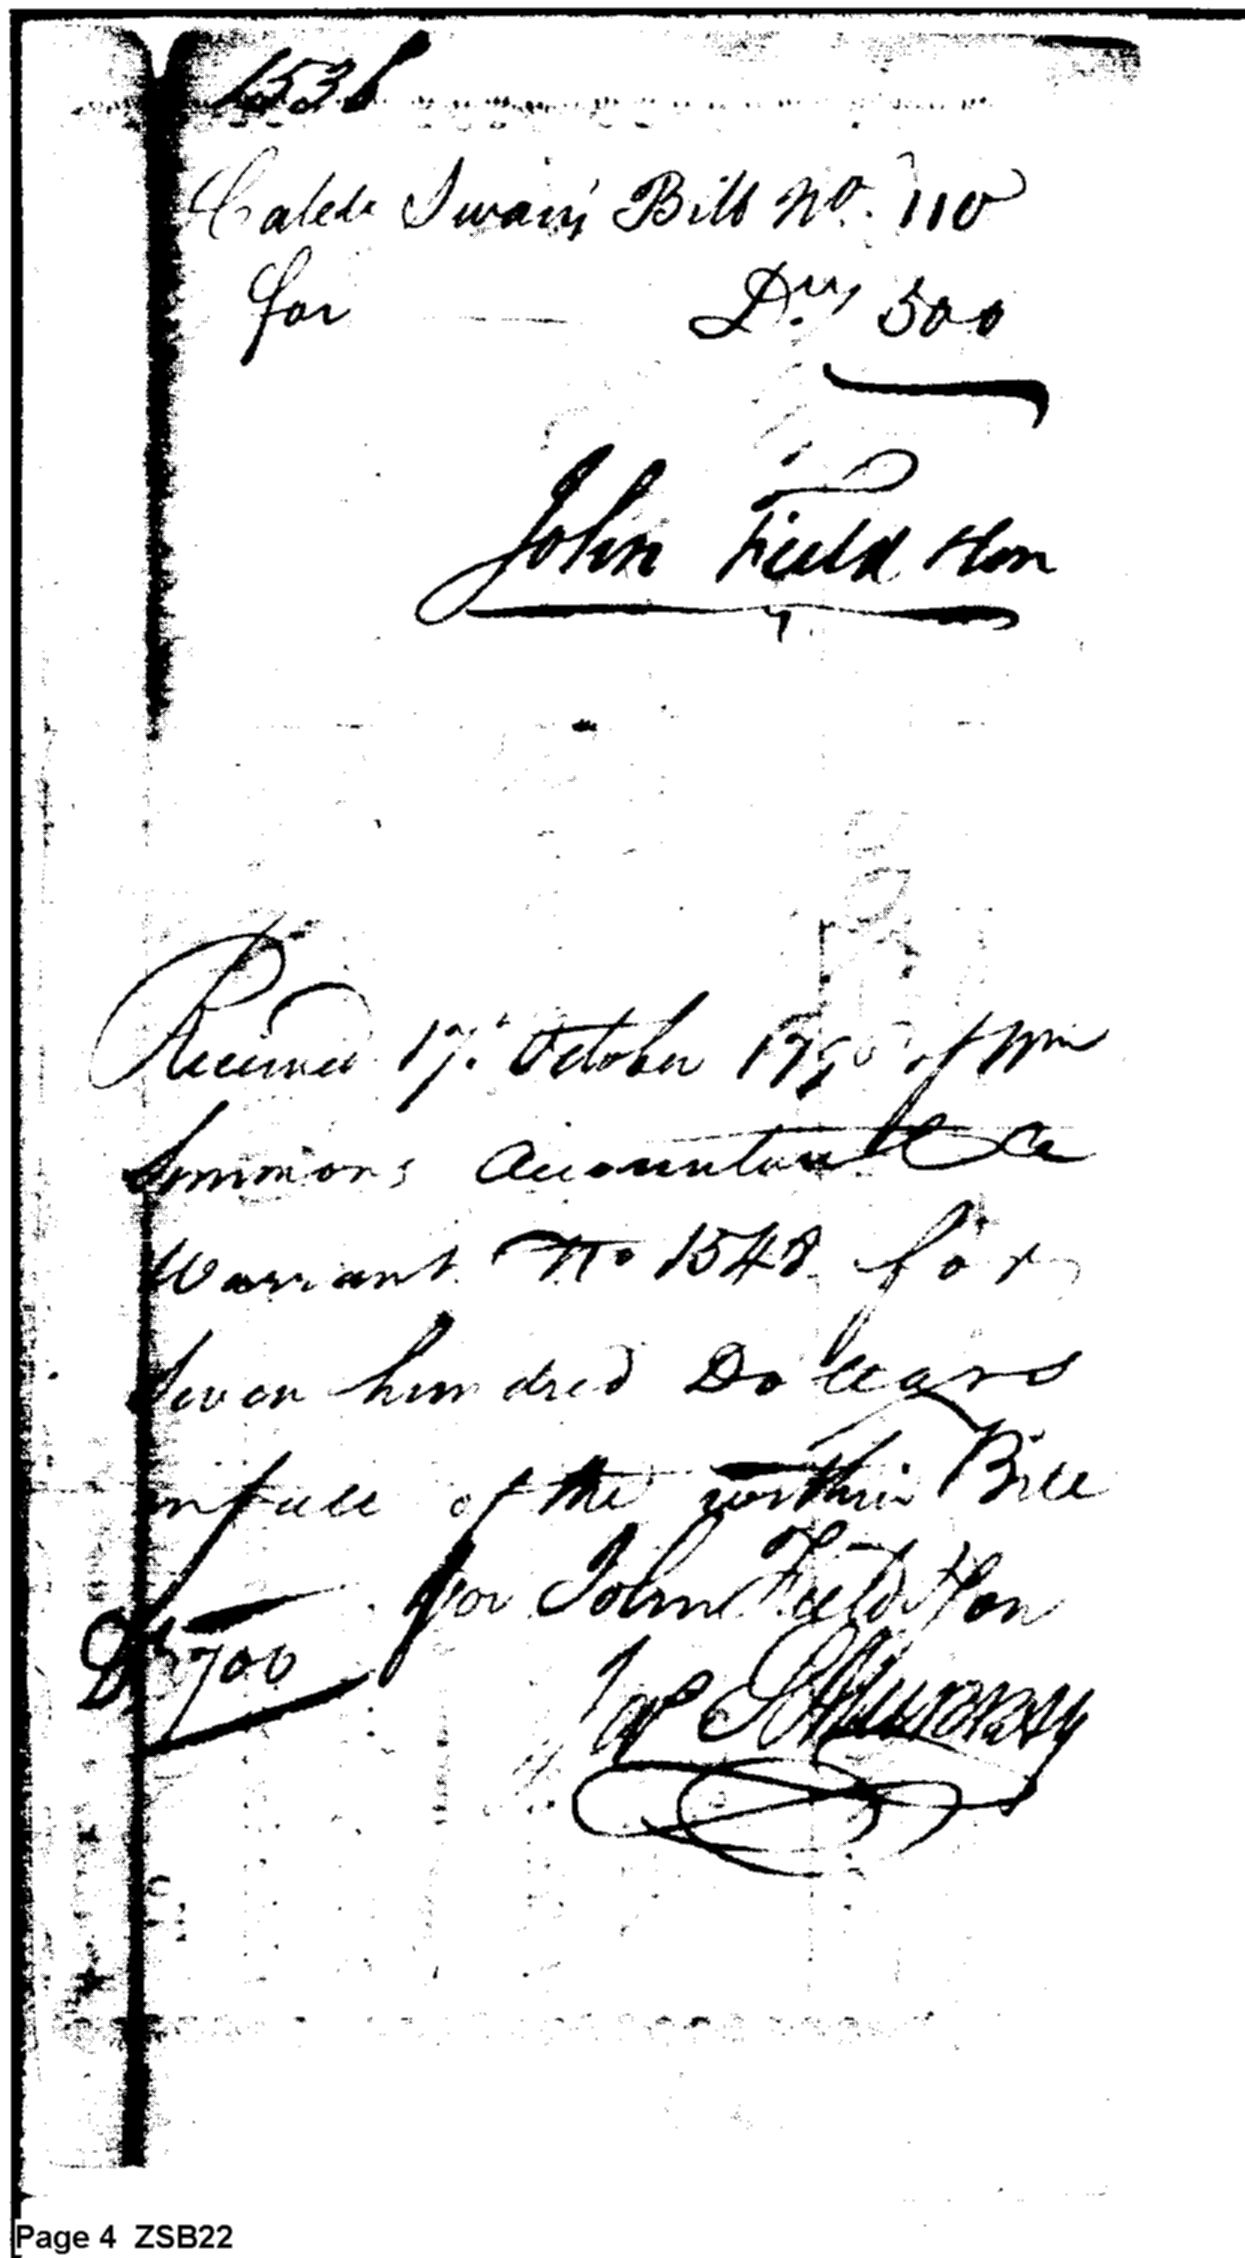 1538
Caleb Swan's Bill No. 110
for Drs 500
John Field Son
Received 17t October 179 of Wm
Simmons Accountant a
Warrant No 1548 for
Seven hundred Dollars
in full of the within Bill
for John Field & Son
Ds 700
Page 4 ZSB22